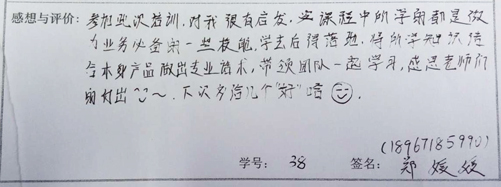 感想与评价：参加此次培训，对我很有启发，安课程中所学到都是做
为业务必备的一些技能，学去后得落地，将所学知识结
合本身产品做出专业话术，带领团队一起学习，感恩老师们
的付出~~。下次多给几个"好"哈
(18967185990)
学号：38 签名：郑媛媛